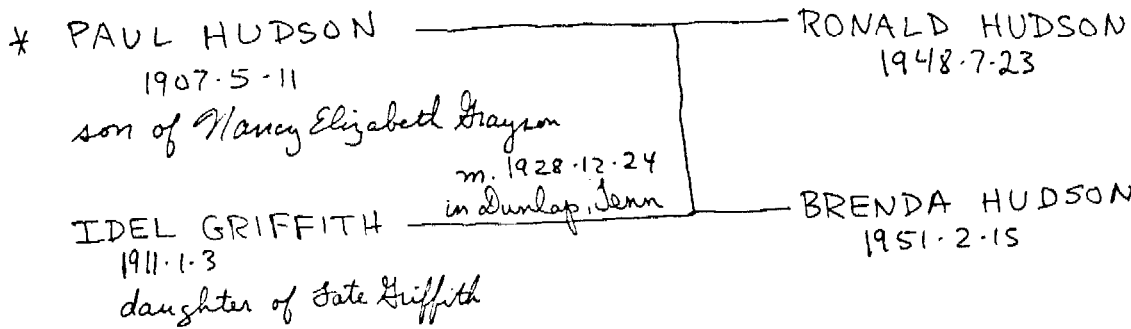 * PAUL HUDSON
1907·5·11
son of Nancy Elizabeth Grayson
m. 1928·12·24
in Dunlap, Tenn
IDEL GRIFFITH
1911·1·3
daughter of Tate Griffith
RONALD HUDSON
1948·7·23
BRENDA HUDSON
1951·2·15